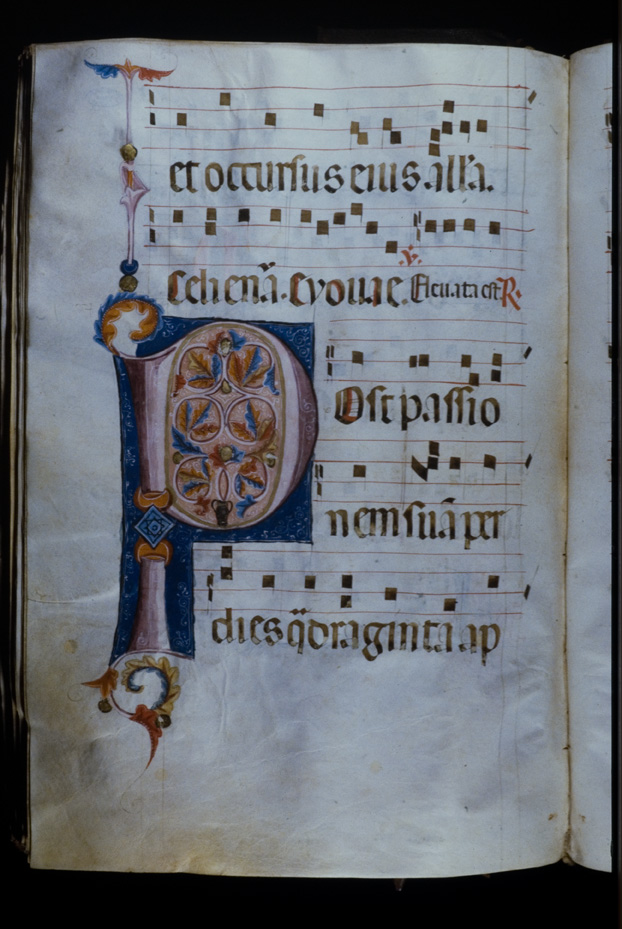 et occursus eius. all'a.
Celi enā. Evouae. ℣. Eleuata est R.
Post passio
nem suā per
dies q̄draginta ap